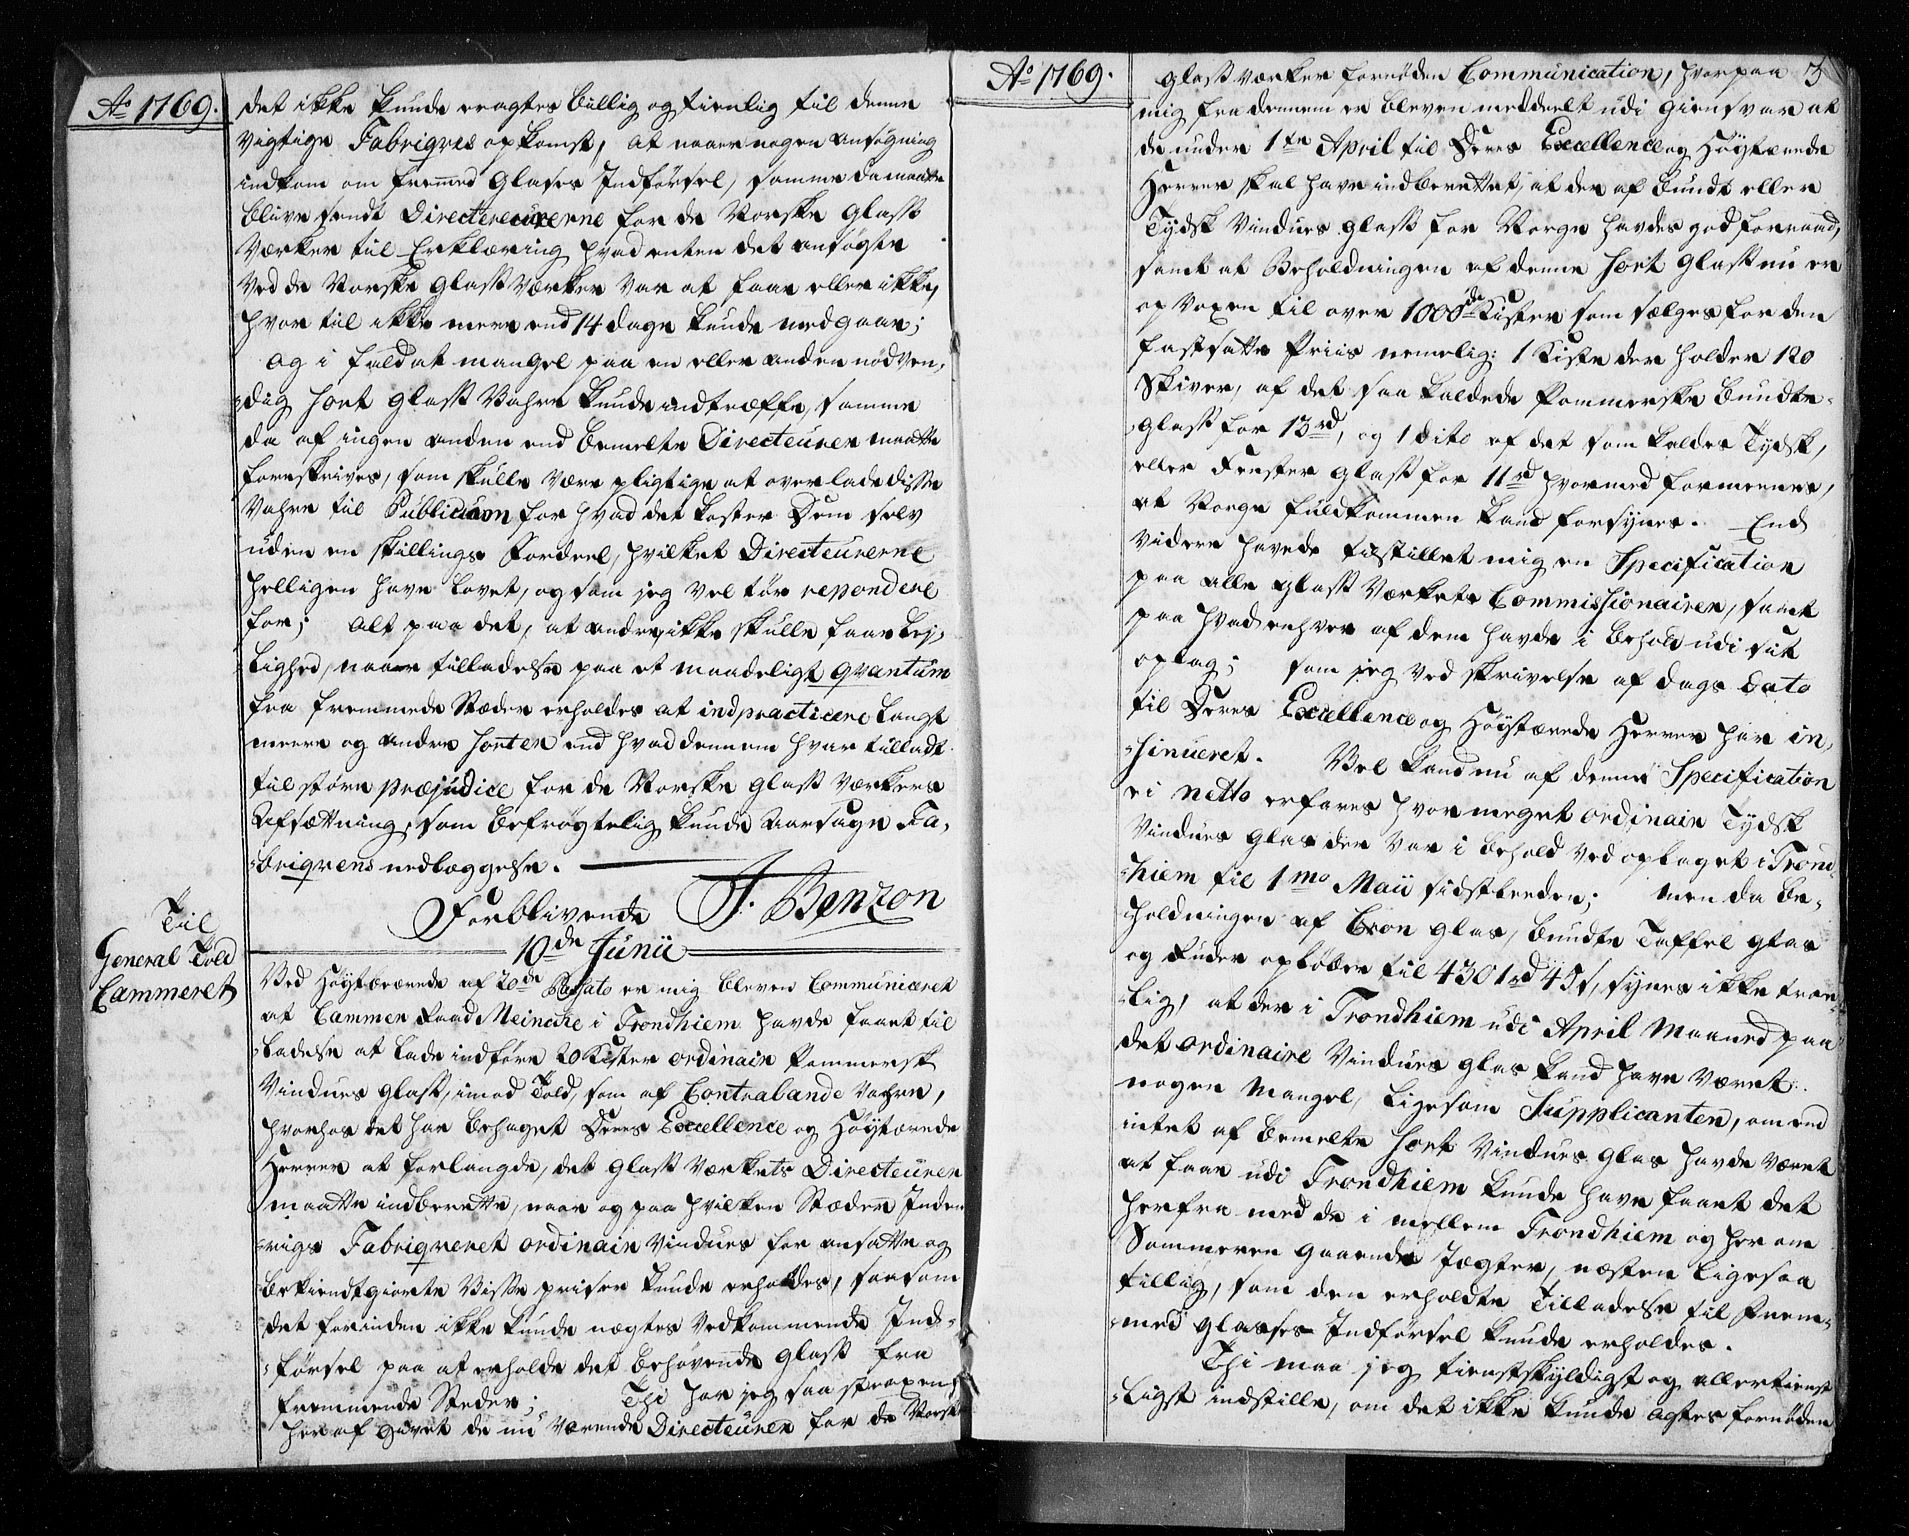 Ao 1769.
det ikke kunde eragtes billig og tienlig til denne
vigtige Fabriqves opkomst, at naar nogen ansøgning
indkom om fremmed Glases Indførsel, samme da maatte
blive sendt Directeureurerne for de Norske Glass
Værker til Erklæring hvad enten det ansøgte
ved de Norske Glass Værker var at faae eller ikke,
hvor til ikke meere end 14 dage kunde medgaae;
Og i fald at mangel paa en eller anden nødven,
dig Sort Glass Vahre kunde indtræffe, samme
da af ingen anden end bemelte Directeurer maatte
foreskrives, som skulle være pligtige at overlade disse
Vahre til Publicum for hvad det koster Dem selv
uden en skillings Fordeel, hvilket Directeurerne
helligen have lovet, og som jeg vel tør repondere
for; alt paa det, at andre ikke skulle faae Lej,
lighed, naar tilladelse paa et maadeligt qvantum
fra fremmede Stæder erholdes at indpracticere langt
meere og andre Sorter end hvad dennem hvar tilladt
til større præjudice for de Norske Glass Værkers
Afsætning, som befrygtelig kunde aarsage Fa,
briqvens nedlæggelse.
Forblivende J. Benzon
10de Junii
Til
General Told
Cammeret
Ved Høystærede af 20de Passato er mig bleven Communiceret
at Cammer Raad Meincke i Trondhiem havde faaet til
ladelse at lade indføre 20 Kister ordinair Pommersk
Vindues Glass, imod Told, som af Contrabande Vahre,
hvorhos det har behaget Deres Excellence og Høystærede
Herrer at forlange, det Glass Værkets Directeurer
maatte indberette, naar og paa hvilken Stæder Inden
rigs Fabriqveret ordinair Vindues for ansatte og
bekiendtgiorte Visse priser kunde erholdes, saasom
det forinden ikke kunde nægtes Vedkommende Ind-
førsel paa at erholde det behøvende Glass fra
fremmende Steder; Thi har jeg saa strax
her af givet de nu værende Directeurer for de Norske
Ao 1769.
3
Glass værker fornøden Communication, hvorpaa
mig fra dennem er bleven meddeelt udi Giensvar at
de under 1te April til Deres Excellence og Høystærede
Herrer skal have indberettet, at der af bundt eller
Tydsk Vindues Glass for Norge havdes god forraad,
samt at Beholdningen af denne Sort Glass nu er
op voxen til over 1000de Kister som sælges for den
fastsatte Priis nemelig: 1 Kiste der holder 120
Skiver, af det saa kaldede Pommerske bundte-
Glass for 13 rd, og 1 dito af det som kaldes Tydsk,
eller Fenster Glass for 11 rd hvormed formeenes,
at Norge fuldkommen kand forsynes. End
videre havede tilstillet mig en Specification
paa alle Glass Værkets Commissionairer, samt
paa hvad enhver af dem havde i behold udi sit
oplag; som jeg ved skrivelse af dags dato
til Deres Excellence og Høystærede Herrer har in,
sinueret. Vel kand nu af denne Specification
ei netto erfares hvor meget ordinair Tydsk
Vindues Glas der var i behold ved oplaget i Trond-
hiem til 1mo Maii sidstleeden; men da be-
holdningen af Cron Glas, bundte Taffel Glas
og Ruder opløber til 4301 rd 4 s, synes ikke troe-
lig, at der i Trondhiem udi April Maaned paa
det ordinaire Vindues Glas kand have været
nogen Mangel, ligesom Supplicanten, om end
intet af bemelte Sort Vindues Glas havde været
at faae udi Trondhiem kunde have faaet det
herfra med de i mellem Trondhiem og her om
Sommeren gaaende Jægter, næsten ligesaa
tillig, som den erholdte Tilladelse til Frem-
med Glasses Indførsel kunde erholdes.
Thi maa jeg tienstskyldigst og allertienst
ligst indstille, om det ikke kunde agtes fornøden